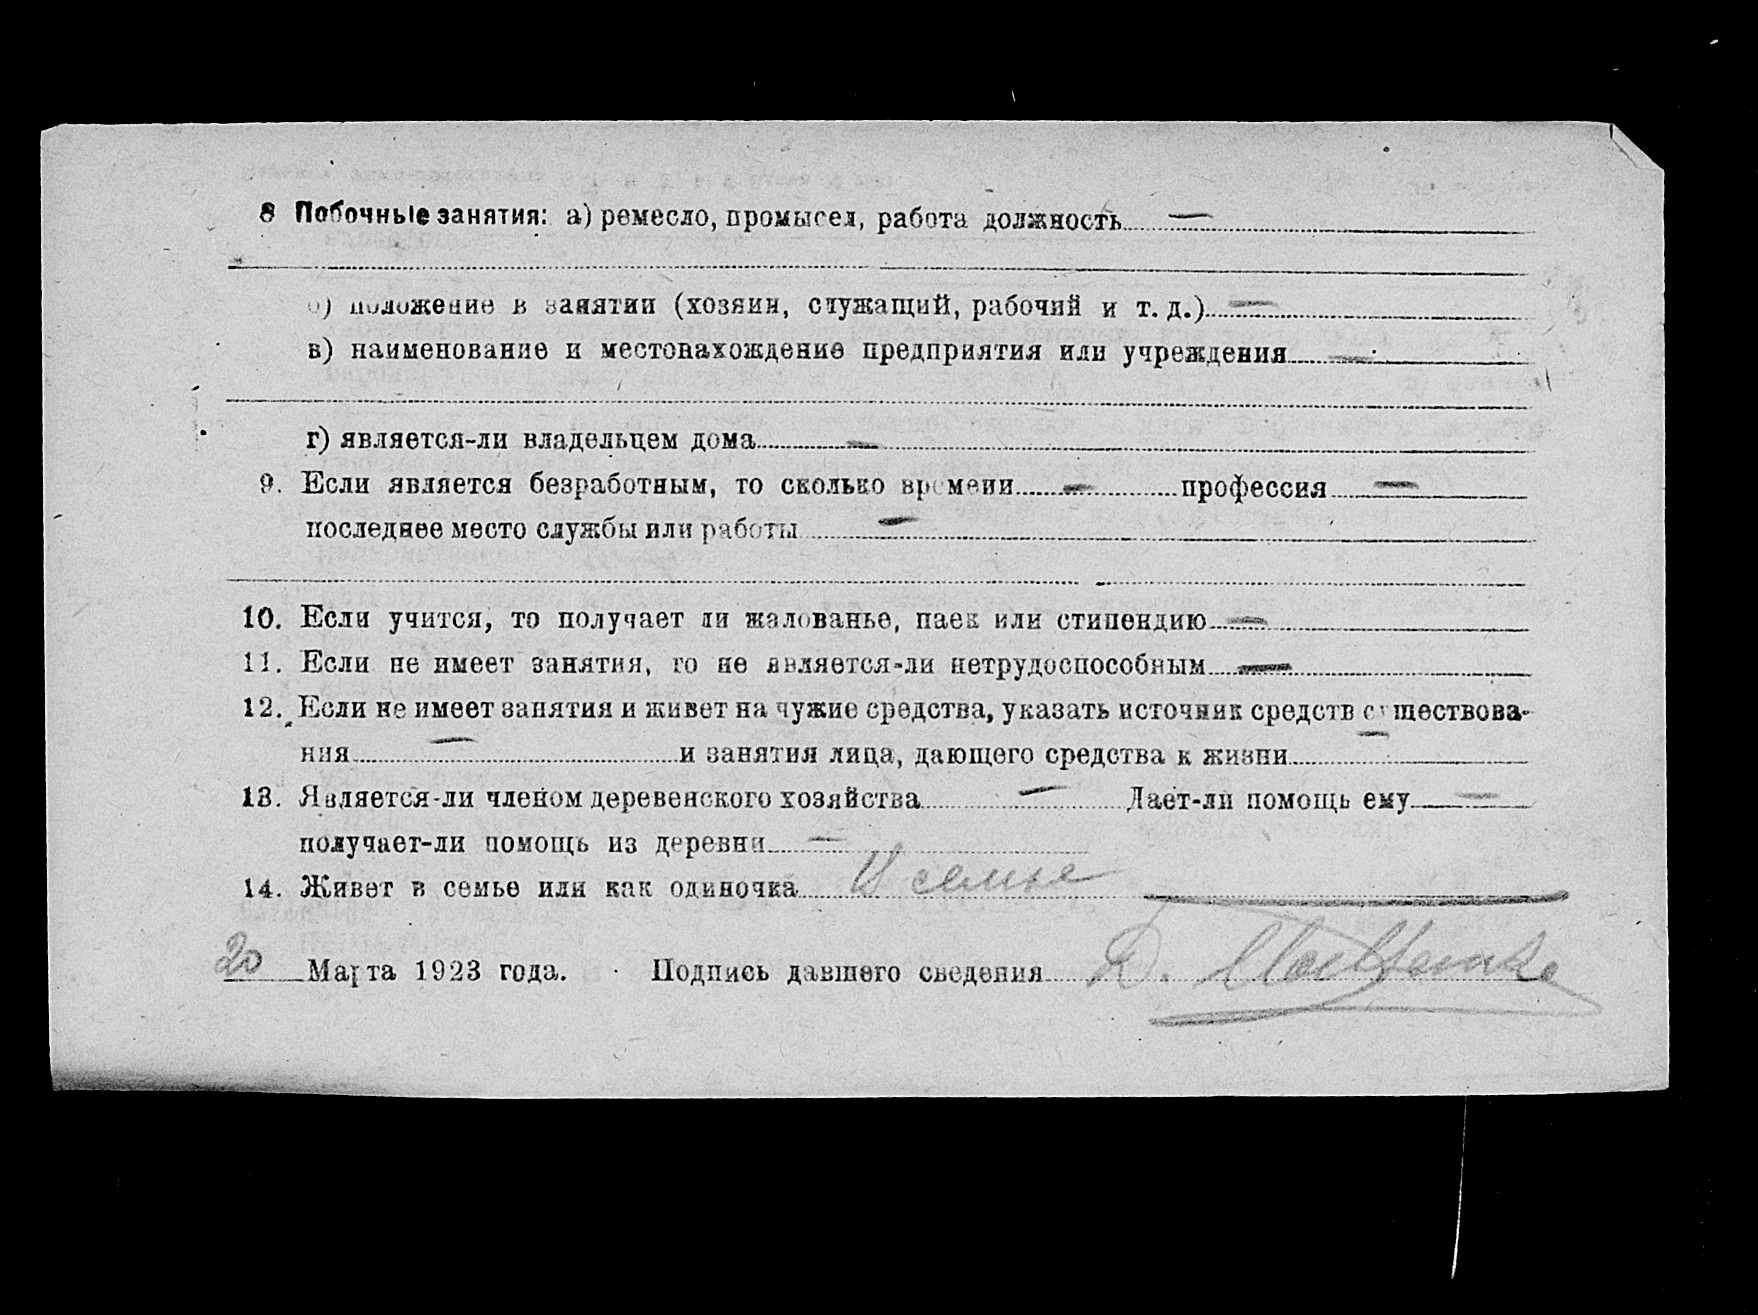 8 Побочные занятия: а) ремесло, промысел, работа должность —
б) положение в занятии (хозяин, служащий, рабочий и т. д.) —
в) наименование и местонахождение предприятия или учреждения —
г) является-ли владельцем дома —
9. Если является безработным, то сколько времени — профессия —
последнее место службы или работы —
10. Если учится, то получает ли жалованье, паек или стипендию —
11. Если не имеет занятия, то не является-ли нетрудоспособным —
12. Если не имеет занятия и живет на чужие средства, указать источник средств существова-
ния — и занятия лица, дающего средства к жизни —
13. Является-ли членом деревенского хозяйства — Дает-ли помощь ему —
получает-ли помощь из деревни —
14. Живет в семье или как одиночка В семье
20 Марта 1923 года. Подпись давшего сведения